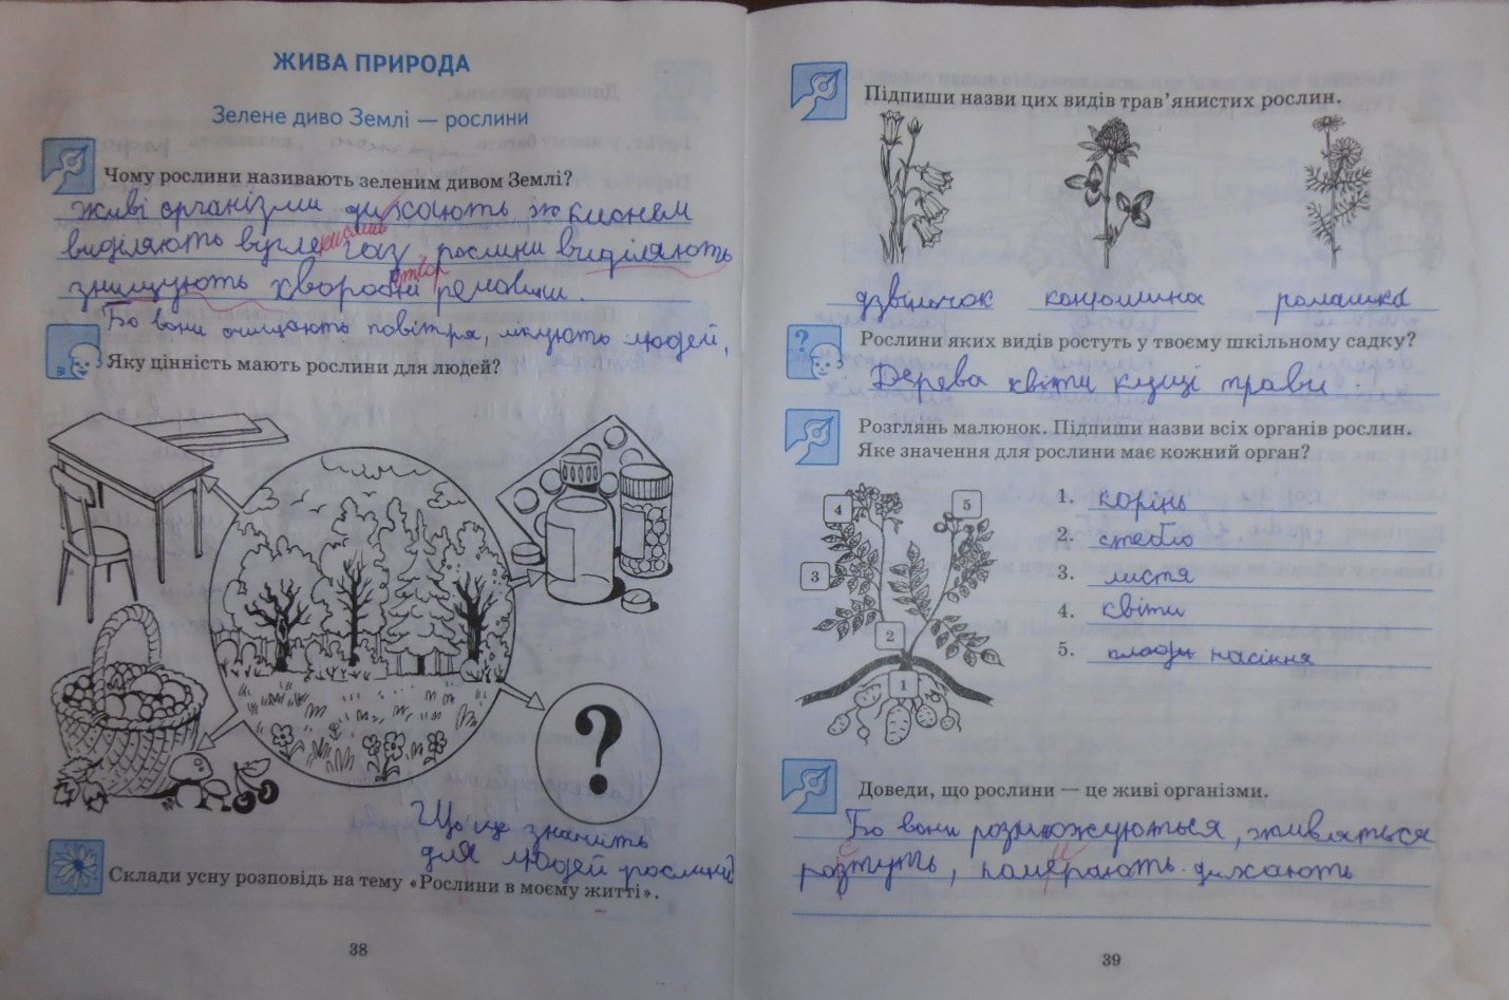 ЖИВА ПРИРОДА
Зелене диво Землі — рослини
Чому рослини називають зеленим дивом Землі?
живі організми дихають киснем
виділяють вугле газ рослини виділяють
кисень
знищують хвороби речовини.
Бо вони очищають повітря, лікують людей,
Яку цінність мають рослини для людей?
?
Що це значить
для людей рослини?
Склади усну розповідь на тему «Рослини в моєму житті».
38
Підпиши назви цих видів трав’янистих рослин.
дзвіночок конюшина ромашка
?
Рослини яких видів ростуть у твоєму шкільному садку?
Дерева квіти кущі трави.
Розглянь малюнок. Підпиши назви всіх органів рослин.
Яке значення для рослини має кожний орган?
4 5
3
2
1
1. корінь
2. стебло
3. листя
4. квіти
5. плоди насіння
Доведи, що рослини — це живі організми.
Бо вони розмножуються, живляться
розтуть, померають. дихають
39